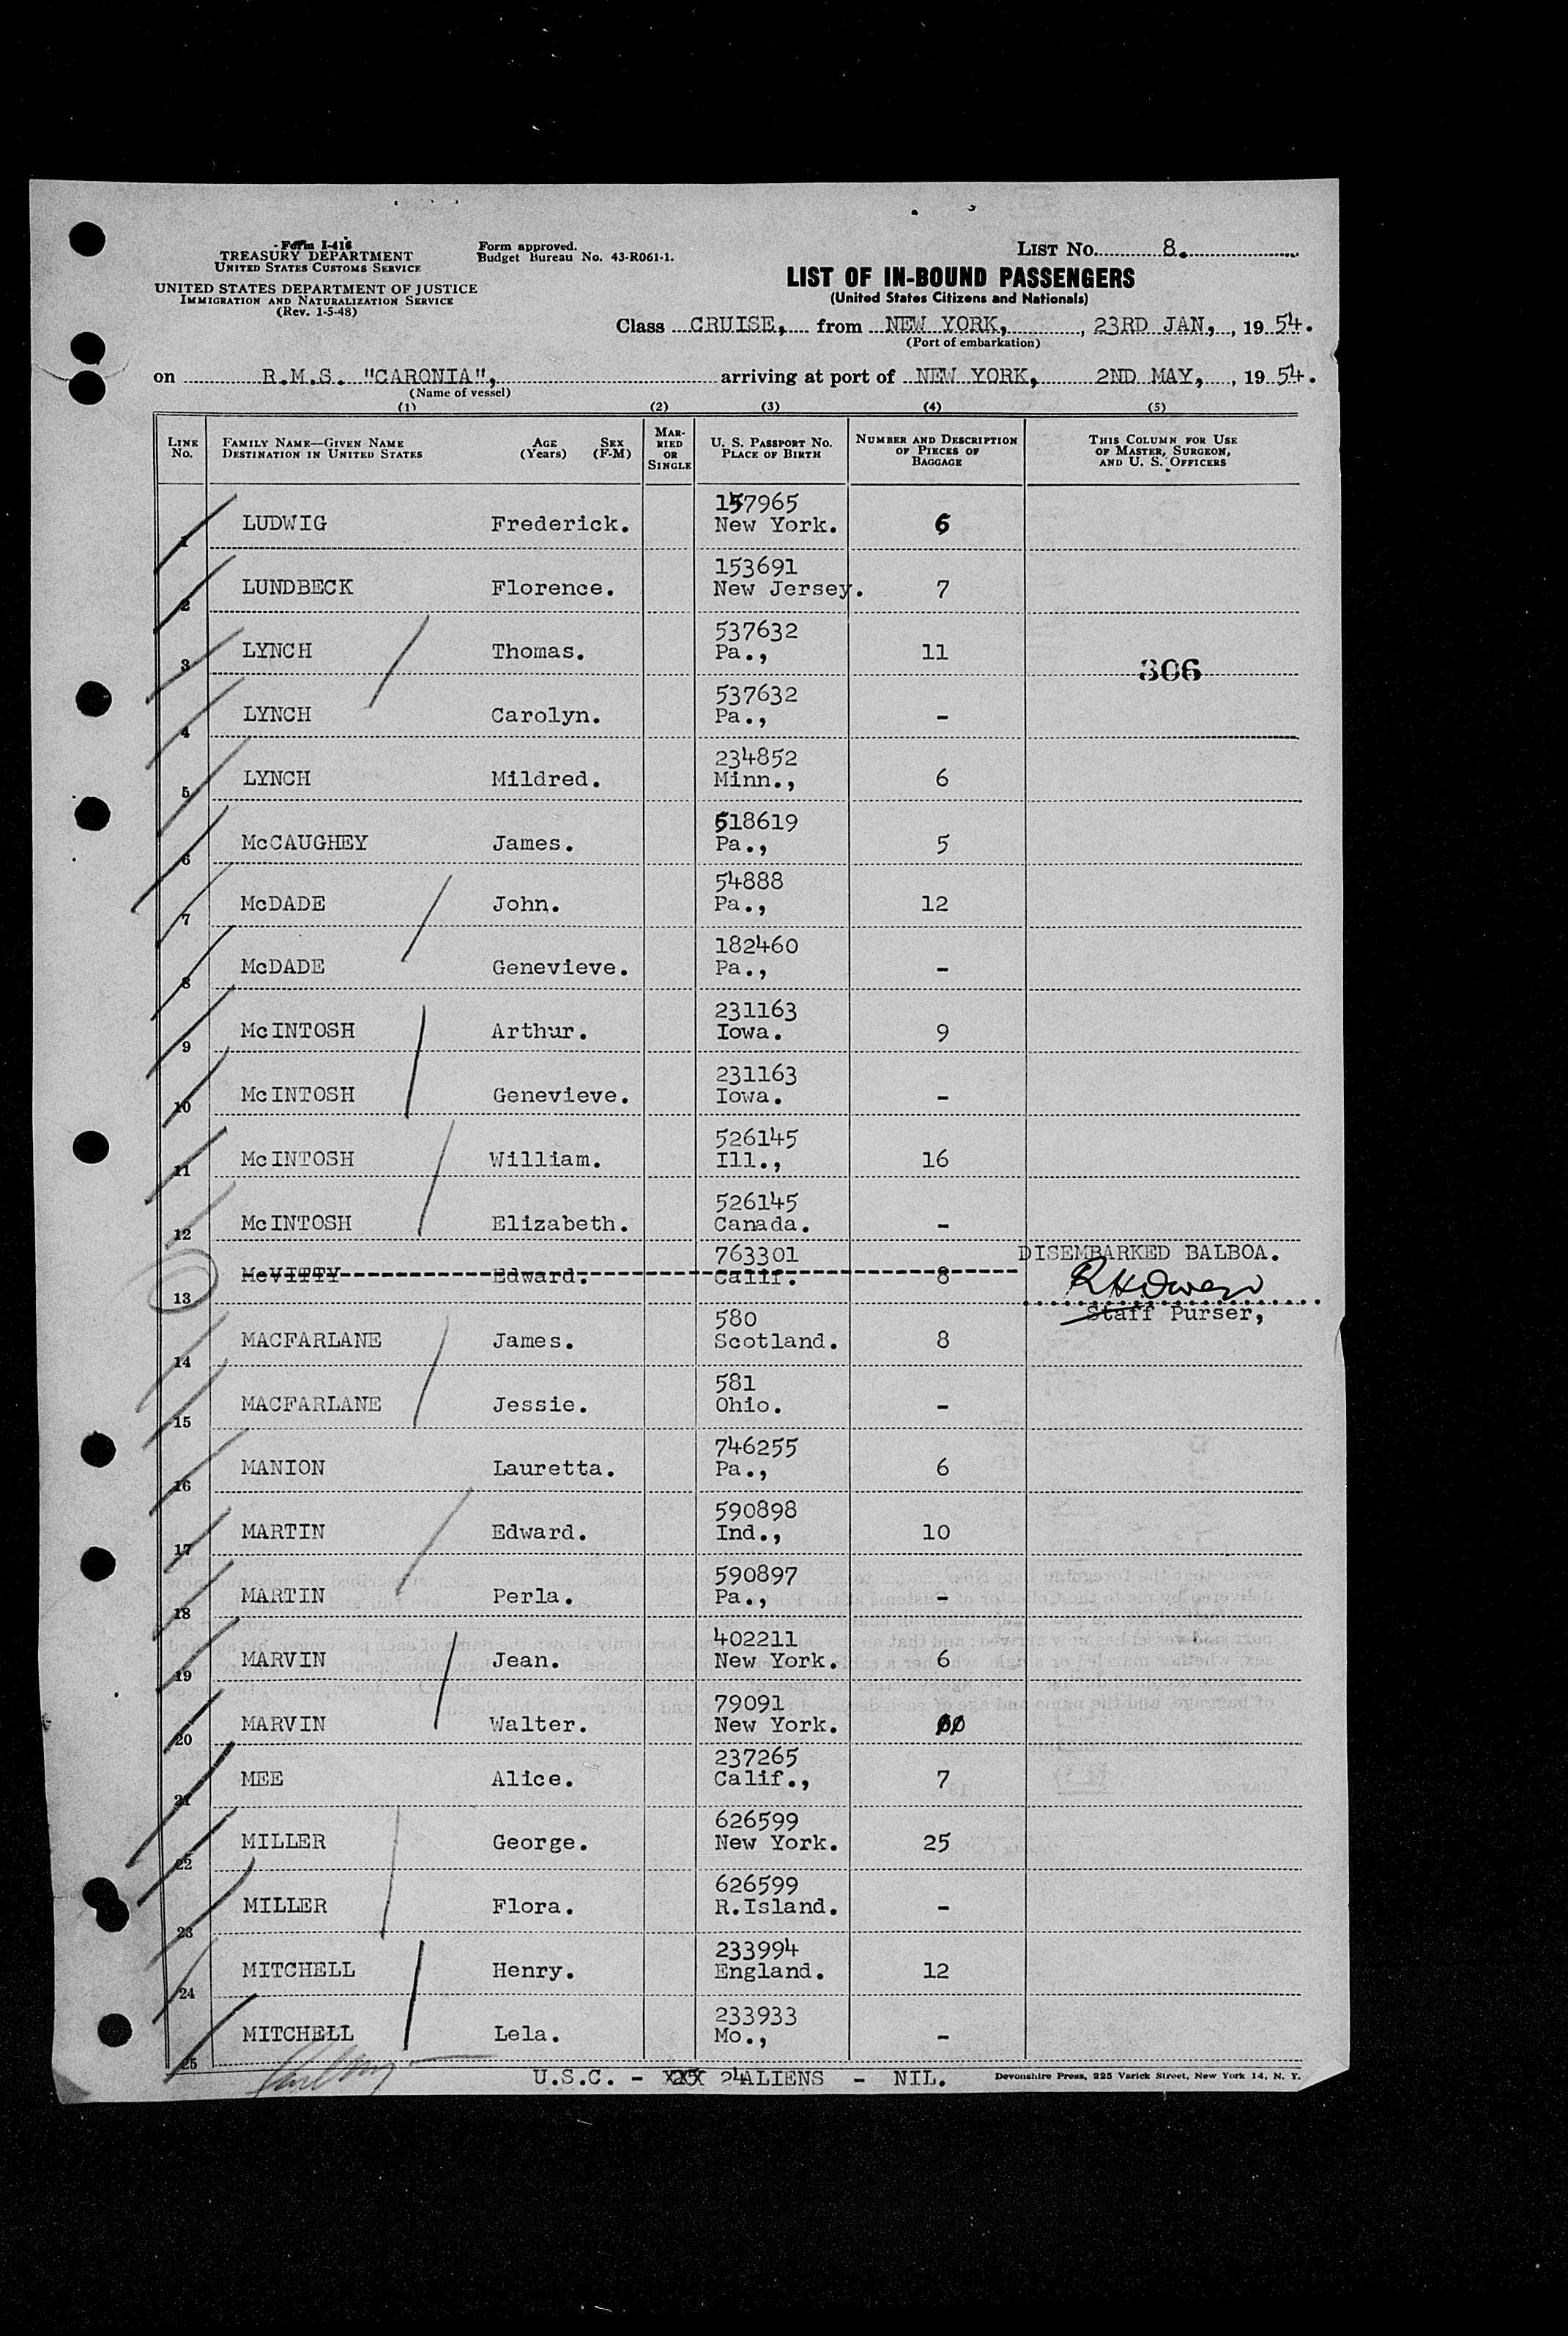 Form I-418
TREASURY DEPARTMENT
UNITED STATES CUSTOMS SERVICE
UNITED STATES DEPARTMENT OF JUSTICE
IMMIGRATION AND NATURALIZATION SERVICE
(Rev. 1-5-48)
Form approved.
Budget Bureau No. 43-R061-1.
LIST No. 8.
LIST OF IN-BOUND PASSENGERS
(United States Citizens and Nationals)
Class CRUISE, from NEW YORK, , 23RD JAN, , 19 54.
(Port of embarkation)
on R.M.S. "CARONIA", arriving at port of NEW YORK, 2ND MAY, , 19 54.
(Name of vessel)
(1) (2) (3) (4) (5)
LINE No. FAMILY NAME—GIVEN NAME DESTINATION IN UNITED STATES AGE (Years) SEX (F-M) MARRIED OR SINGLE U. S. PASSPORT No. PLACE OF BIRTH NUMBER AND DESCRIPTION OF PIECES OF BAGGAGE THIS COLUMN FOR USE OF MASTER, SURGEON, AND U. S. OFFICERS
157965
1 LUDWIG Frederick. New York. 6
153691
2 LUNDBECK Florence. New Jersey. 7
537632
3 LYNCH Thomas. Pa., 11
306
537632
4 LYNCH Carolyn. Pa., -
234852
5 LYNCH Mildred. Minn., 6
618619
6 McCAUGHEY James. Pa., 5
54888
7 McDADE John. Pa., 12
182460
8 McDADE Genevieve. Pa., -
231163
9 McINTOSH Arthur. Iowa. 9
231163
10 McINTOSH Genevieve. Iowa. -
526145
11 McINTOSH William. Ill., 16
526145
12 McINTOSH Elizabeth. Canada. -
763301 DISEMBARKED BALBOA.
13 McVITTY Edward. Calif. 8
R H Owen
Staff Purser,
580
14 MACFARLANE James. Scotland. 8
581
15 MACFARLANE Jessie. Ohio. -
746255
16 MANION Lauretta. Pa., 6
590898
17 MARTIN Edward. Ind., 10
590897
18 MARTIN Perla. Pa., -
402211
19 MARVIN Jean. New York. 6
79091
20 MARVIN Walter. New York.
237265
21 MEE Alice. Calif., 7
626599
22 MILLER George. New York. 25
626599
23 MILLER Flora. R.Island. -
233994
24 MITCHELL Henry. England. 12
233933
25 MITCHELL Lela. Mo., -
U.S.C. - 25 24 ALIENS - NIL.
Devonshire Press, 225 Varick Street, New York 14, N. Y.